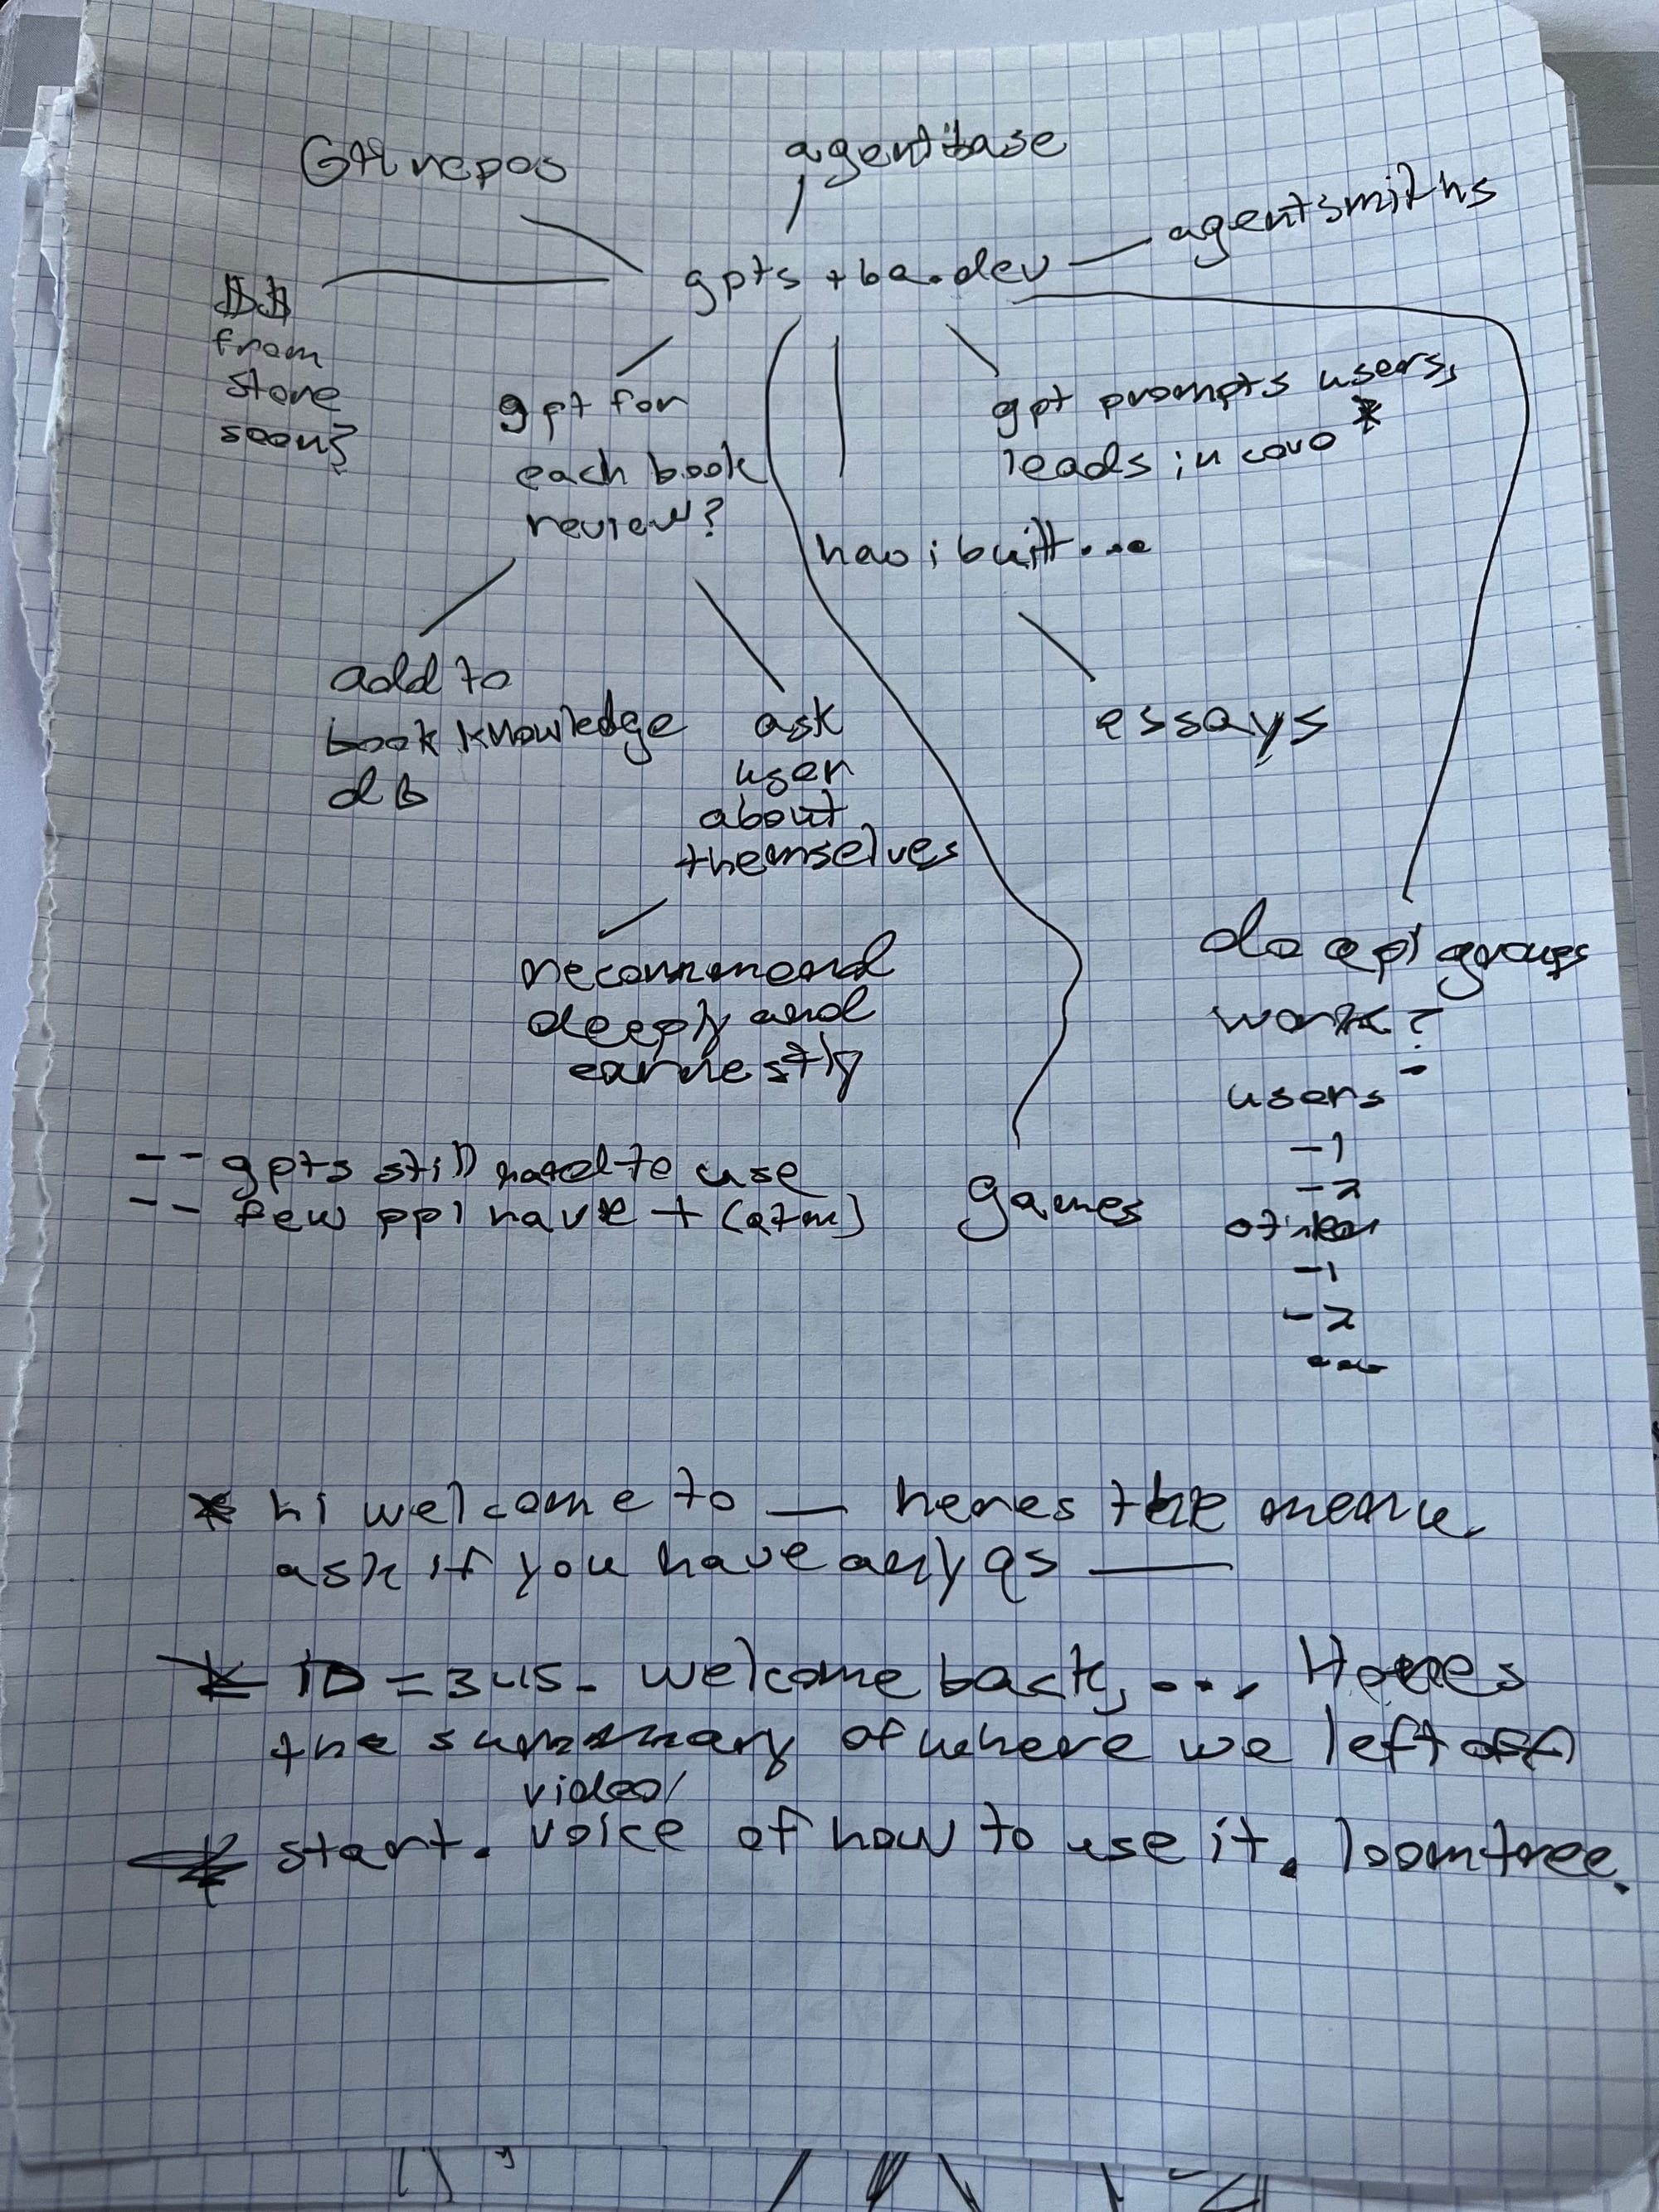 GH repos
agentbase
agentsmiths
gpts + ba.dev
$$
from
store
soon?
gpt for
each book
review?
gpt prompts users,
leads in convo *
how i built...
add to
book knowledge
db
ask
user
about
themselves
essays
recommend
deeply and
earnestly
do api groups
work?
users
-1
-2
other
-1
-2
...
-- gpts still hard to use
-- few ppl have + (atm)
games
* hi welcome to __ heres the menu.
ask if you have any qs __
* ID = 345. welcome back, .... Heres
the summary of where we left off
video/
* start. voice of how to use it. loomtree.